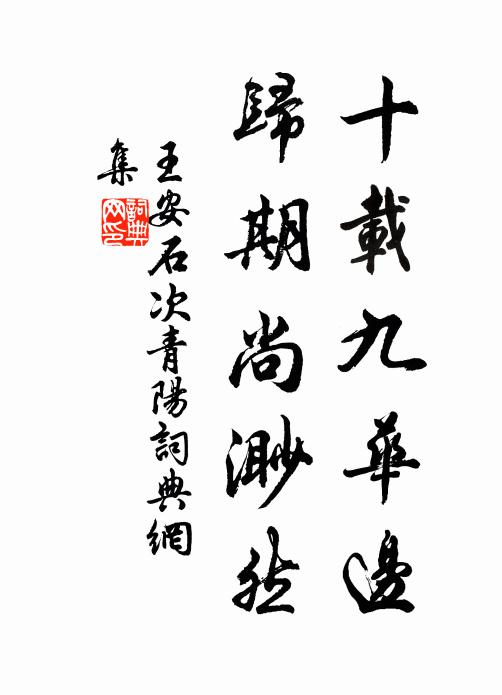 十載九華邊
歸期尚渺然
王安石次青陽詞典網
集
詞典網印